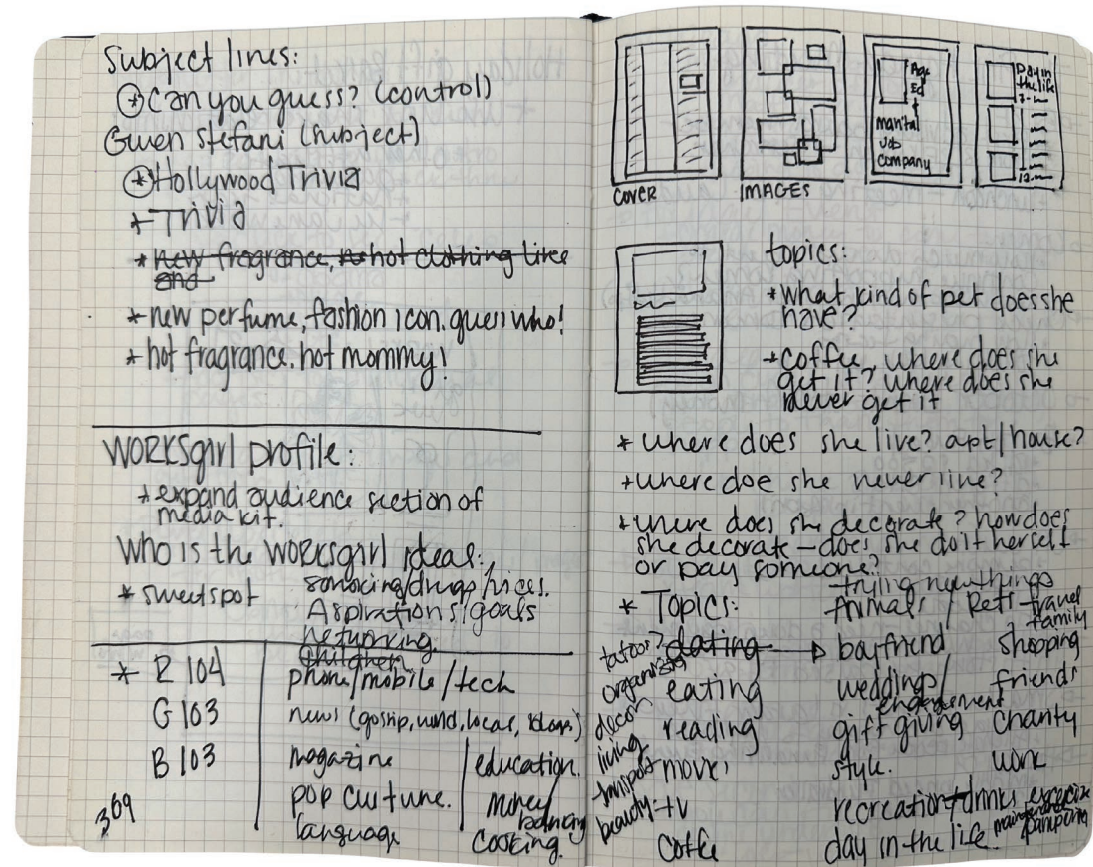 Subject lines:
* Can you guess? (control)
Gwen Stefani (subject)
* Hollywood Trivia
* Trivia
* new fragrance, hot clothing line
and
* new perfume, fashion icon. guess who!
* hot fragrance. hot mommy!
WORKSgirl profile:
* expand audience section of
media kit.
Who is the WORKSgirl ideas:
* sweetspot
smoking/drugs/vices.
Aspirations/goals
networking
children
* R 104
G 103
B 103
369
phone/mobile/tech
news (gossip, world, local, blogs)
magazine
pop culture.
language
education.
money/
banking
cooking.
COVER
IMAGES
Age
Ed
marital
Job
Company
Day in
the life
topics:
* what kind of pet does she
have?
* coffee, where does she
get it? where does she
never get it
* where does she live? apt/house?
* where doe she never live?
* where does she decorate? how does
she decorate – does she do it herself
or pay someone?
* Topics:
tattoos?
organizing
decor
living
transport
beauty
dating
eating
reading
tv
trying new things
Animals / Pets
boyfriend
weddings/
engagement
gift giving
style.
recreation
day in the life
travel
family
shopping
friends
charity
work
drinks
exercise
pampering